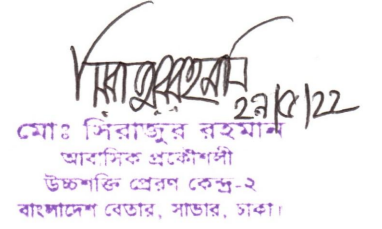 সিরাজুর রহমান
২৯/৫/২২
মোঃ সিরাজুর রহমান
আবাসিক প্রকৌশলী
উচ্চশক্তি প্রেরণ কেন্দ্র-২
বাংলাদেশ বেতার, সাভার, ঢাকা।